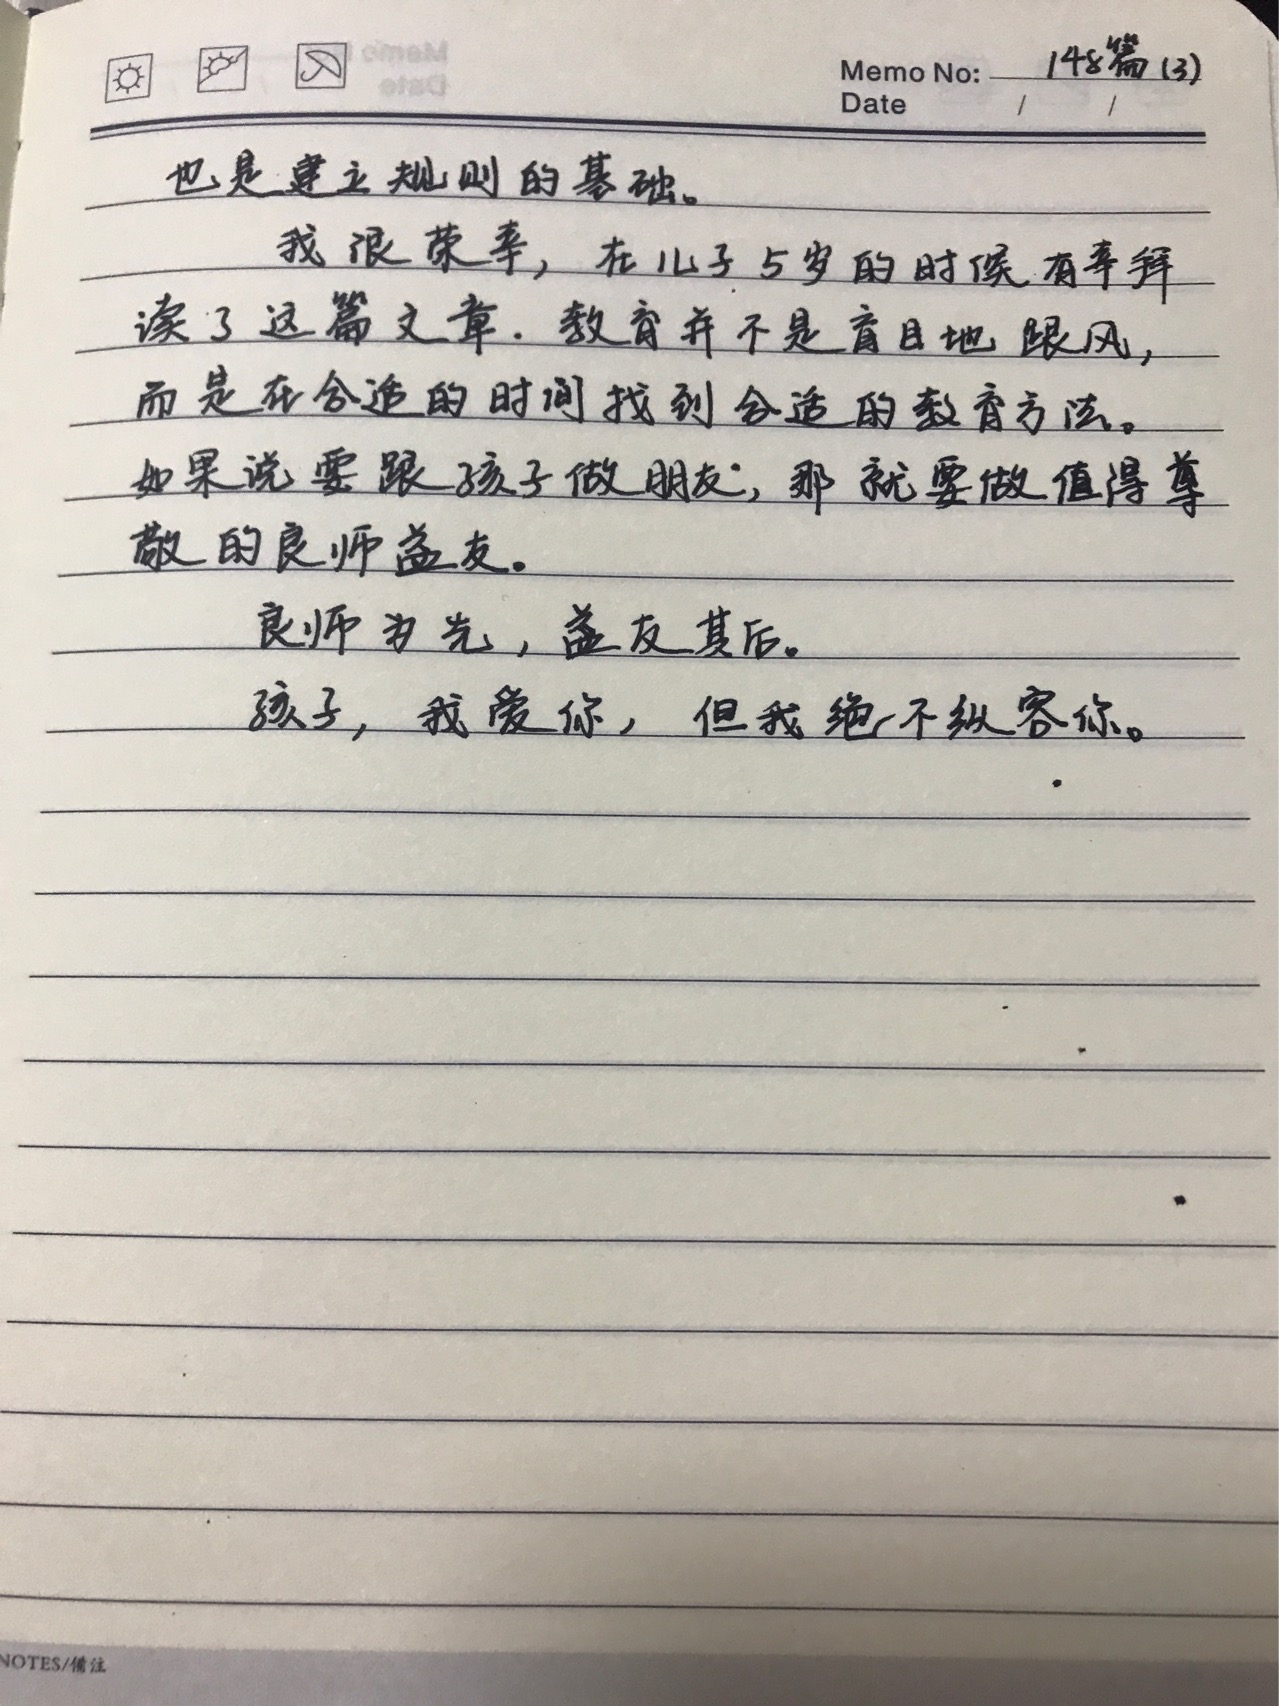 Memo No: 148篇(3)
Date / /
也是建立规则的基础。
我很荣幸，在儿子5岁的时候有幸拜
读了这篇文章．教育并不是盲目地跟风，
而是在合适的时间找到合适的教育方法。
如果说要跟孩子做朋友，那就要做值得尊
敬的良师益友。
良师为先，益友其后。
孩子，我爱你，但我绝不纵容你。
NOTES/備注